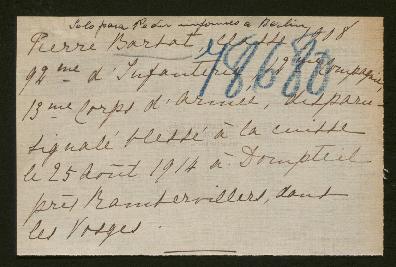 Solo para Pedir informes a Berlin
Pierre Bartat, classe 1908
92me d'Infanterie, 12me Compagnie,
18680
13me Corps d'Armée, disparu
signalé blessé à la cuisse
le 25 août 1914 à Dompteil
près Rambervillers, dans
les Vosges.